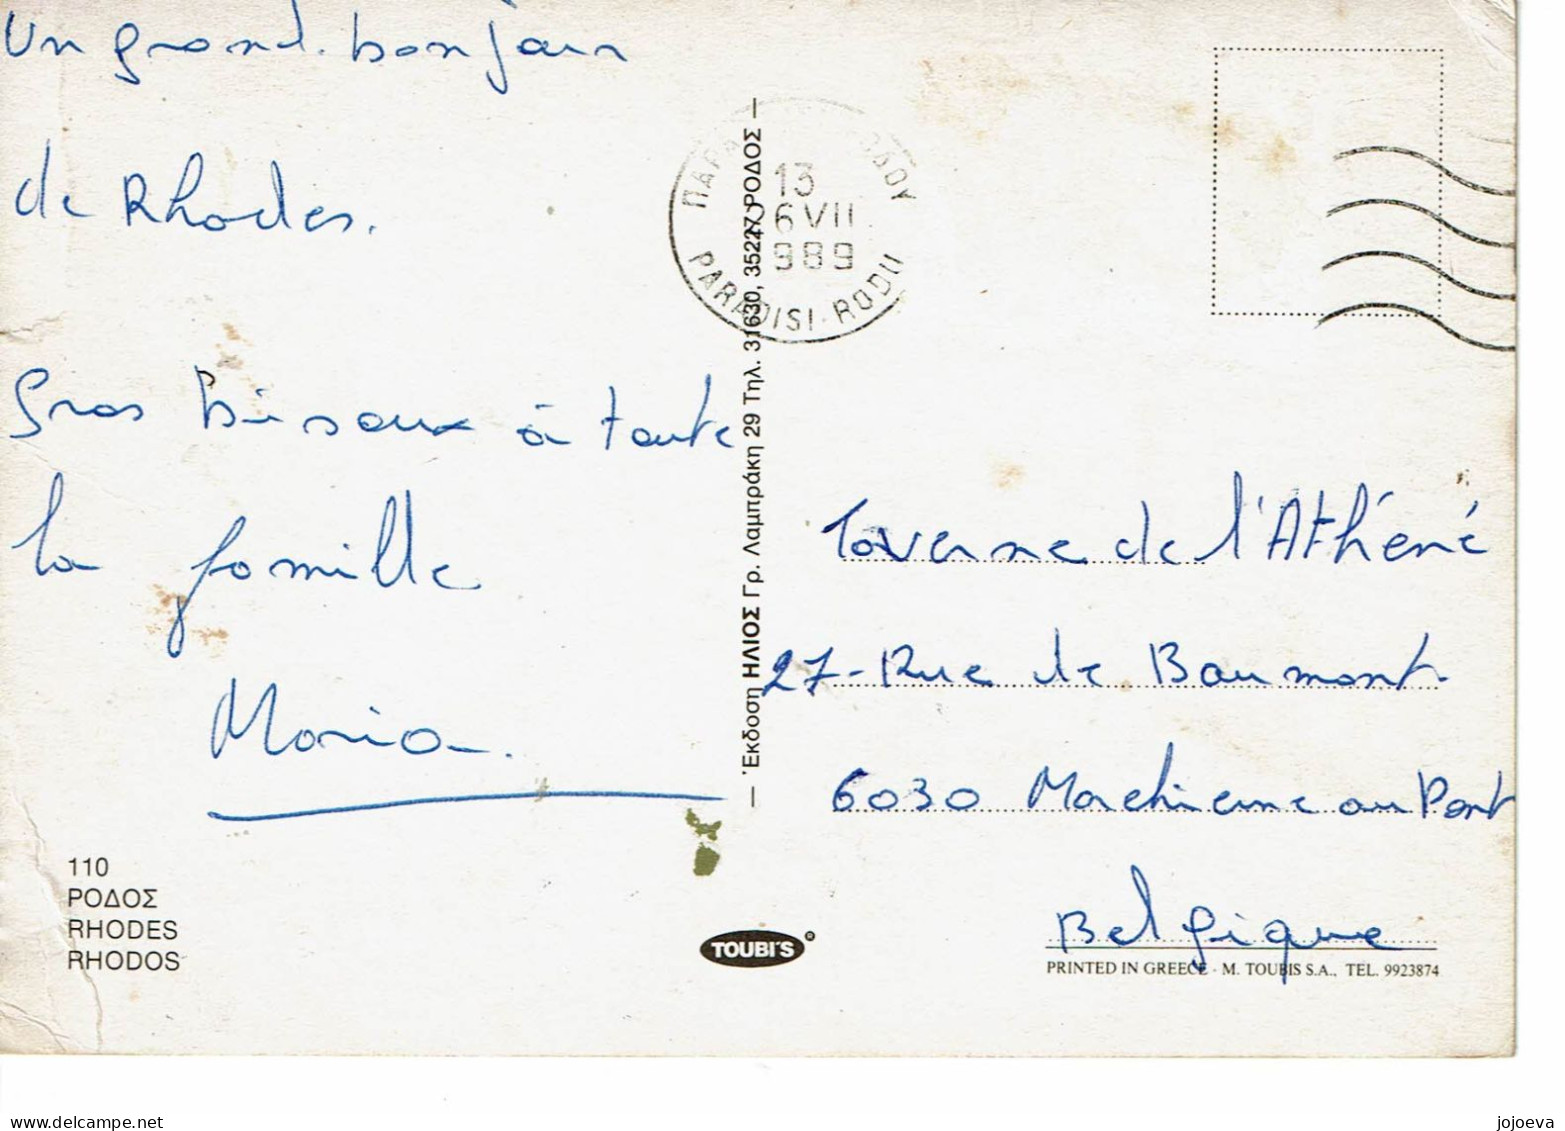 Un grand bonjour
de Rhodes.
Gros bisoux à toute
la famille
Maria.
110
ΡΟΔΟΣ
RHODES
RHODOS
Έκδοση ΗΛΙΟΣ Γρ. Λαμπράκη 29 Τηλ. 31630, 35227 ΡΟΔΟΣ
13
6 VII
989
PARADISI - RODU
Taverne de l'Athéné
27 - Rue de Baumont.
6030 Machienne au Pont
Belgique
TOUBI'S ®
PRINTED IN GREECE - M. TOUBIS S.A., TEL. 9923874
delcampe.net
jojoeva